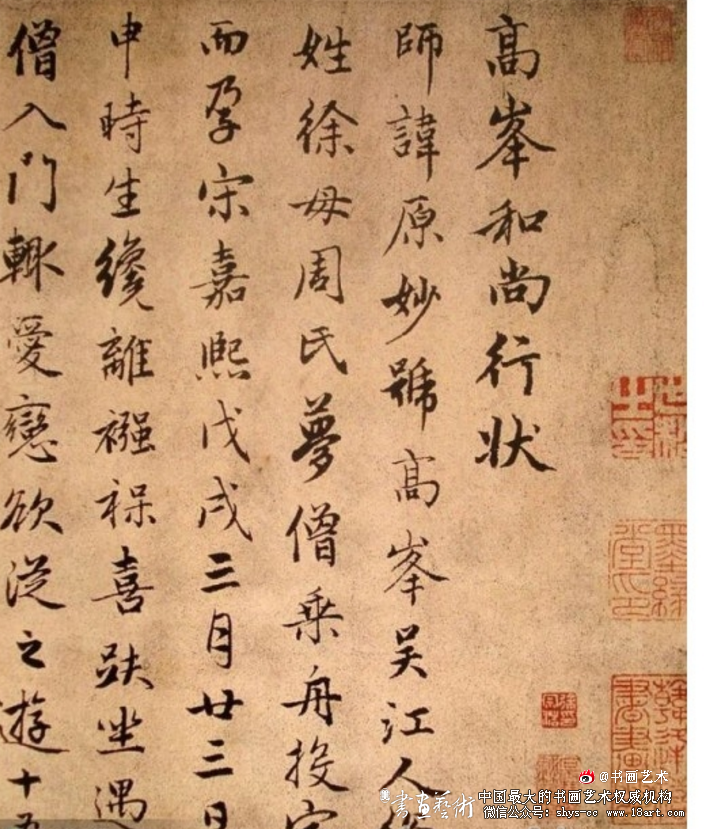 高峯和尚行狀
師諱原妙號高峯吳江人俗
姓徐母周氏夢僧乘舟投宿
而孕宋嘉熙戊戌三月廿三日
申時生纔離襁褓喜趺坐遇
僧入門輙愛戀欲從之遊十五
墨緣堂印
書畫藝術
@书画艺术
中国最大的书画艺术权威机构
微信公众号：shys-cc www.18art.com